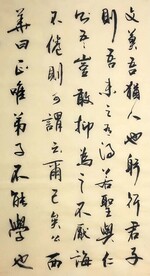 文莫吾猶人也躬行君子
則吾未之有得若聖與仁
則吾豈敢抑為之不厭誨
不倦則可謂云爾已矣公西
華曰正唯弟子不能學也